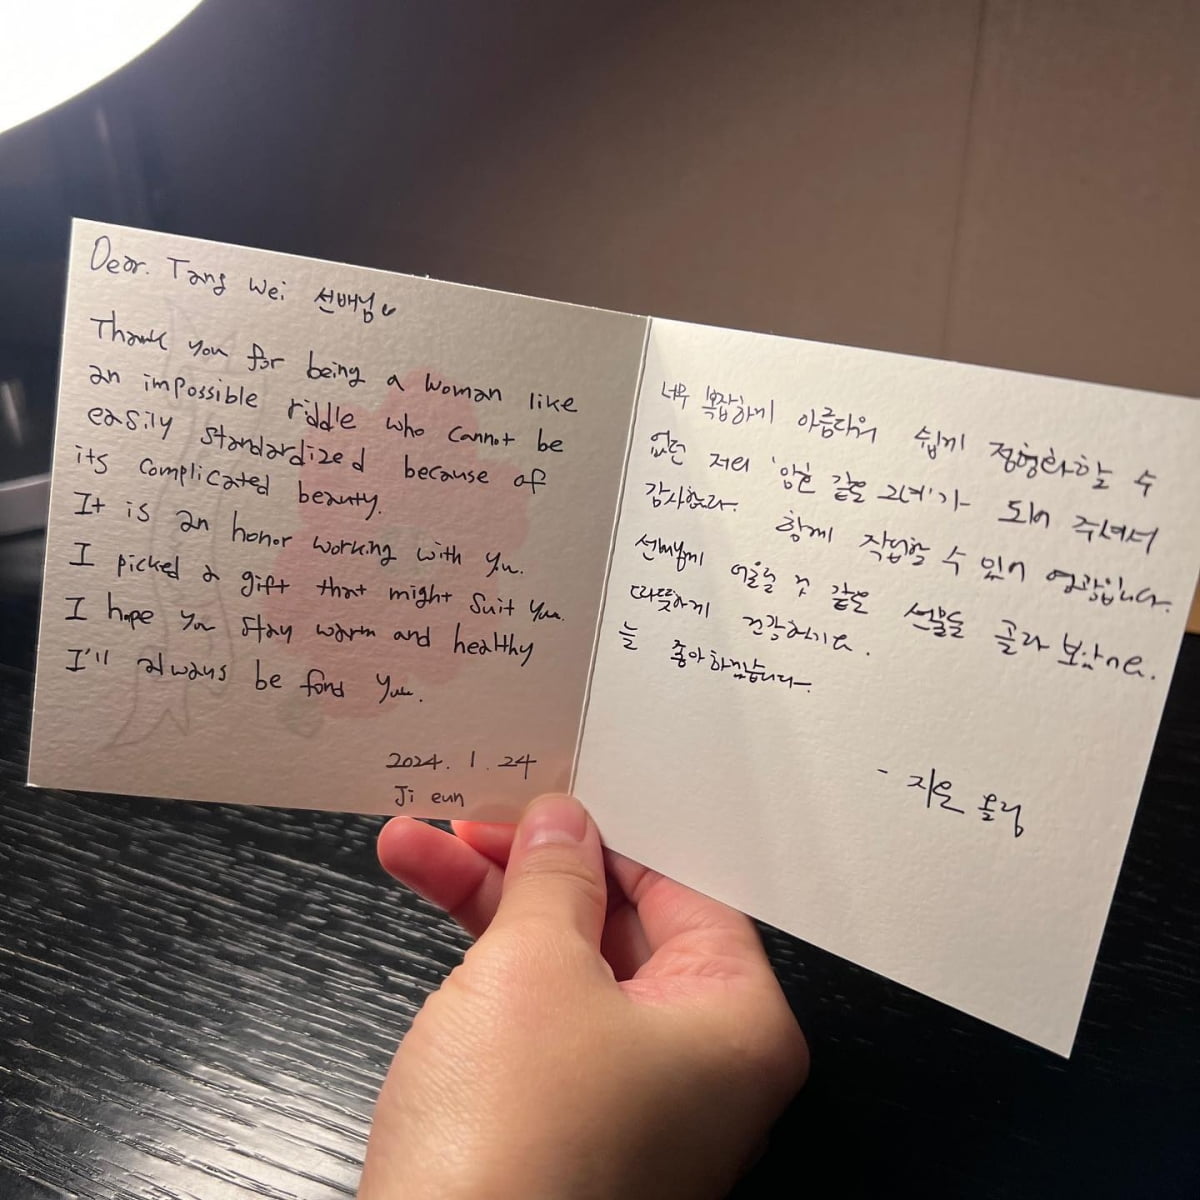 Dear. Tang Wei 선배님♥
Thank you for being a woman like
an impossible riddle who cannot be
easily standardized because of
its complicated beauty.
It is an honor working with you.
I picked a gift that might suit you.
I hope you stay warm and healthy
I'll always be fond you.
2024. 1. 24
Ji eun
너무 복잡하게 아름다워 쉽게 정형화할 수
없던 저의 '암호 같은 그녀'가 되어 주셔서
감사해요. 함께 작업할 수 있어 영광입니다.
선배님께 어울릴 것 같은 선물을 골라 보았어요.
따뜻하게 건강하기를.
늘 좋아하겠습니다-
- 지은 올림